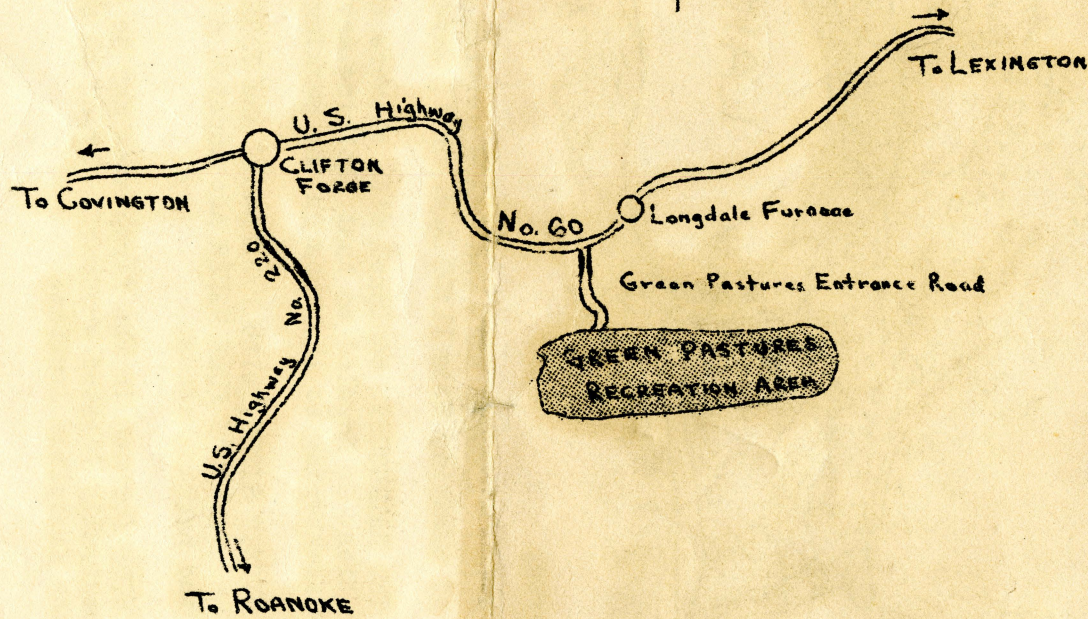 To LEXINGTON
U.S. Highway
CLIFTON
FORGE
To COVINGTON
Longdale Furnace
No. 60
220
Green Pastures Entrance Road
No.
GREEN PASTURES
RECREATION AREA
U.S. Highway
To ROANOKE